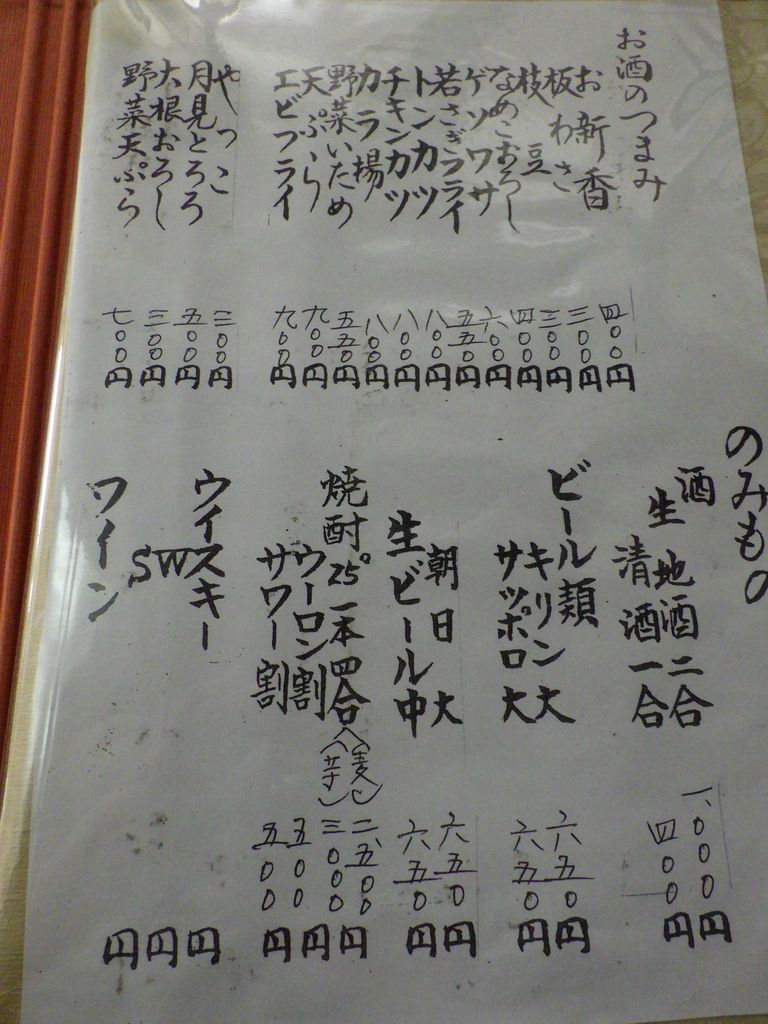 お酒のつまみ
お新香 四00円
板わさ 三00円
枝豆 三00円
なめこおろし 四00円
ゲソワサ 六00円
若さぎフライ 五五0円
トンカツ 八00円
チキンカツ 八00円
カラ揚 八00円
野菜いため 五五0円
天ぷら 九00円
エビフライ 九00円
やっこ 三00円
月見とろろ 五00円
大根おろし 三00円
野菜天ぷら 七00円
のみもの
酒
地酒二合 一、000円
生清酒一合 四00円
ビール類
キリン大 六五0円
サッポロ大 六五0円
朝日大 六五0円
生ビール中 六五0円
焼酎25°一本四合
(麦) 二、五00
(芋) 三000円
ウーロン割 五00円
サワー割 五00円
ウイスキー 円
SW 円
ワイン 円